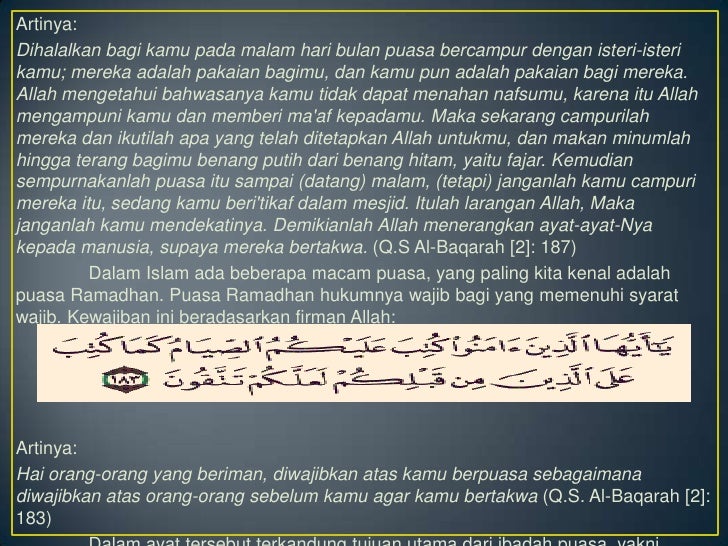 Artinya:
Dihalalkan bagi kamu pada malam hari bulan puasa bercampur dengan isteri-isteri
kamu; mereka adalah pakaian bagimu, dan kamu pun adalah pakaian bagi mereka.
Allah mengetahui bahwasanya kamu tidak dapat menahan nafsumu, karena itu Allah
mengampuni kamu dan memberi ma'af kepadamu. Maka sekarang campurilah
mereka dan ikutilah apa yang telah ditetapkan Allah untukmu, dan makan minumlah
hingga terang bagimu benang putih dari benang hitam, yaitu fajar. Kemudian
sempurnakanlah puasa itu sampai (datang) malam, (tetapi) janganlah kamu campuri
mereka itu, sedang kamu beri'tikaf dalam mesjid. Itulah larangan Allah, Maka
janganlah kamu mendekatinya. Demikianlah Allah menerangkan ayat-ayat-Nya
kepada manusia, supaya mereka bertakwa. (Q.S Al-Baqarah [2]: 187)
Dalam Islam ada beberapa macam puasa, yang paling kita kenal adalah
puasa Ramadhan. Puasa Ramadhan hukumnya wajib bagi yang memenuhi syarat
wajib. Kewajiban ini beradasarkan firman Allah:
يَٰٓأَيُّهَا ٱلَّذِينَ ءَامَنُوا۟ كُتِبَ عَلَيْكُمُ ٱلصِّيَامُ كَمَا كُتِبَ
عَلَى ٱلَّذِينَ مِن قَبْلِكُمْ لَعَلَّكُمْ تَتَّقُونَ ١٨٣
Artinya:
Hai orang-orang yang beriman, diwajibkan atas kamu berpuasa sebagaimana
diwajibkan atas orang-orang sebelum kamu agar kamu bertakwa (Q.S. Al-Baqarah [2]:
183)
Dalam ayat tersebut terkandung tujuan utama dari ibadah puasa, yakni